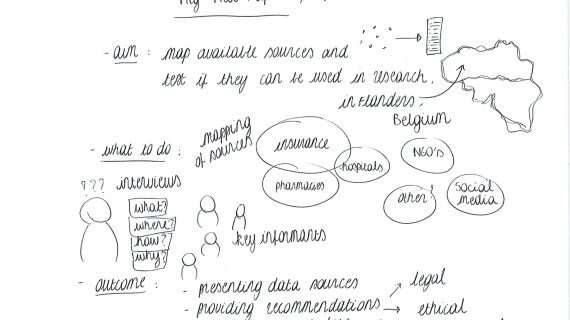 - aim : map available sources and
test if they can be used in research,
in Flanders,
Belgium
- what to do :
mapping
of sources
insurance
hospitals
pharmacies
NGO's
other!
social
media
??? interviews
what?
where?
how?
why?
key informants
- outcome :
- presenting data sources
- providing recommendations → legal
→ ethical